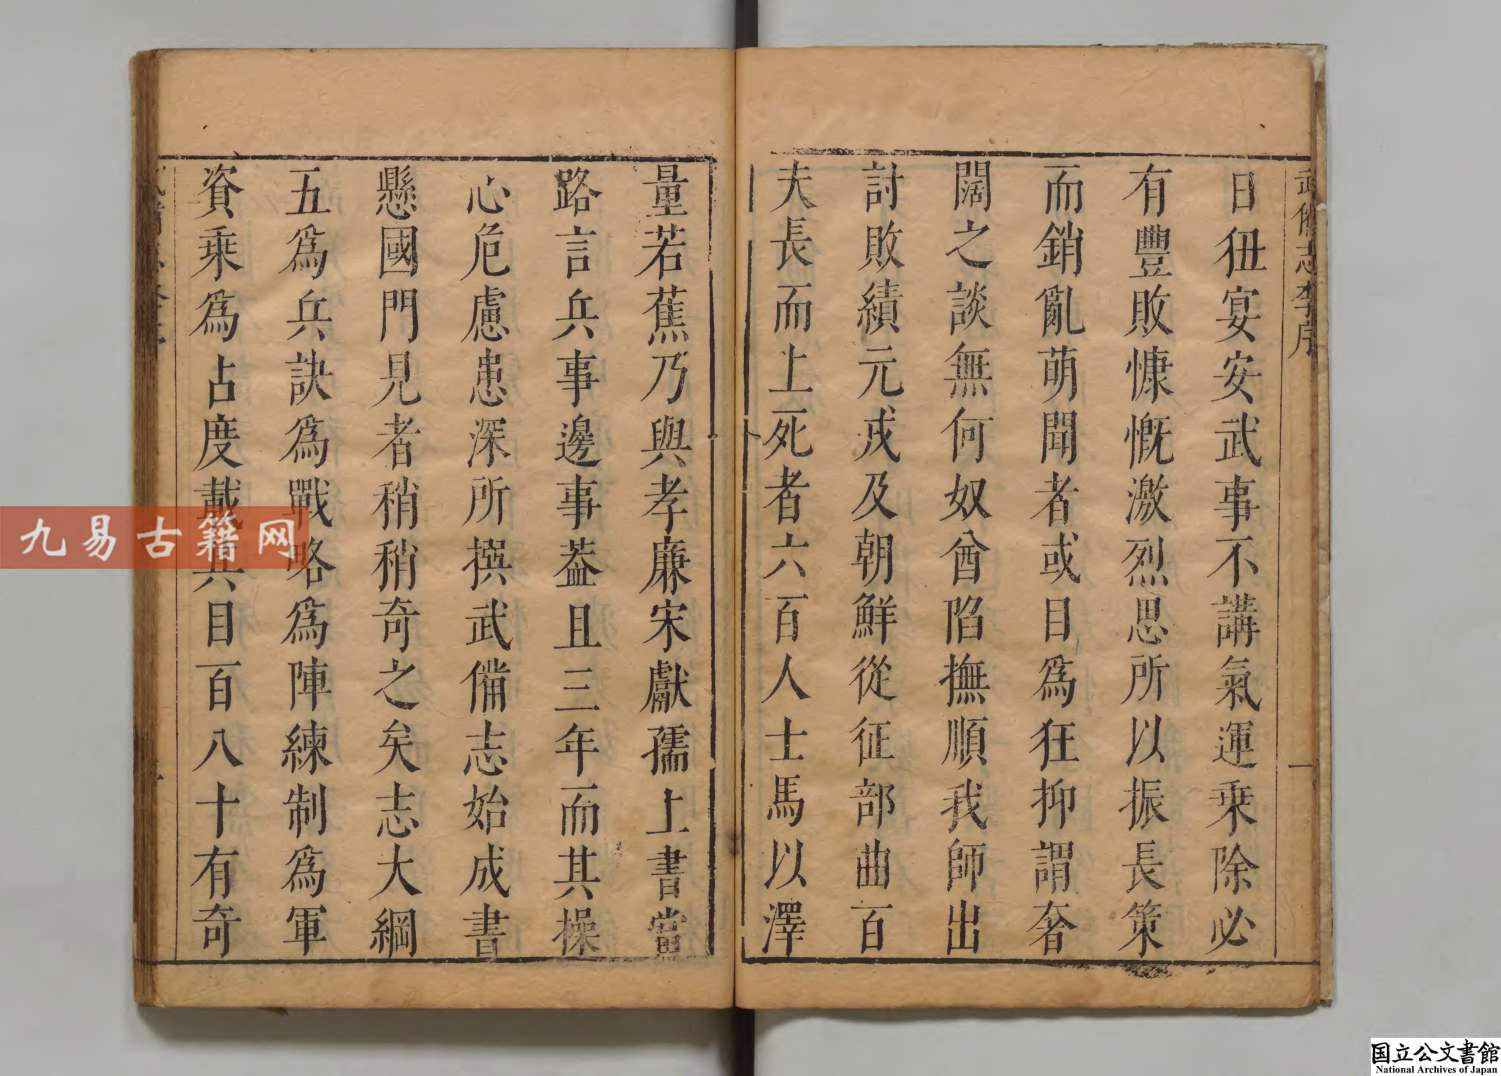 武備志李序
一
日狃宴安武事不講氣運乘除必
有豐敗慷慨激烈思所以振長策
而銷亂萌聞者或目爲狂抑謂奢
闊之談無何奴酋陷撫順我師出
討敗績元戎及朝鮮從征部曲百
夫長而上死者六百人士馬以澤
量若蕉乃與孝廉宋獻孺上書當
路言兵事邊事葢且三年而其操
心危慮患深所撰武備志始成書
懸國門見者稍稍奇之矣志大綱
五爲兵訣爲戰略爲陣練制爲軍
資乘爲占度載其目百八十有奇
九易古籍网
国立公文書館
National Archives of Japan